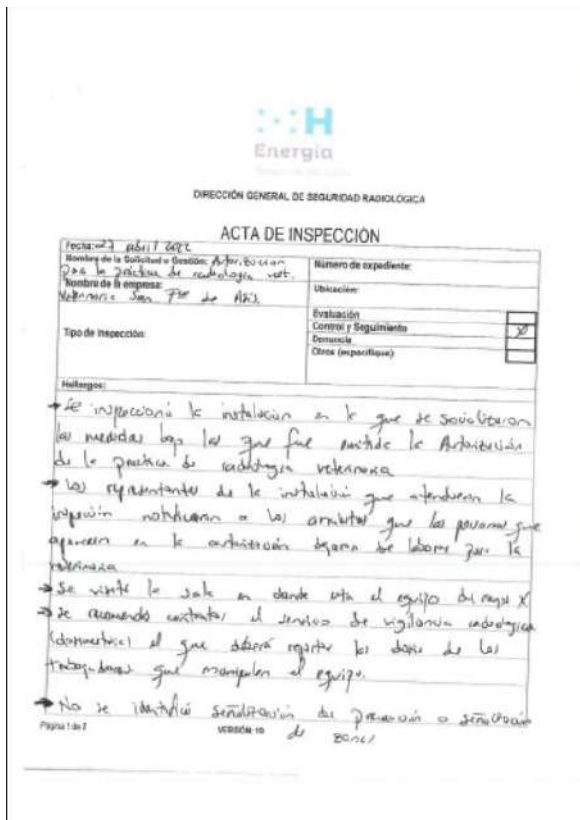 H
Energía
DIRECCIÓN GENERAL DE SEGURIDAD RADIOLÓGICA
ACTA DE INSPECCIÓN
Fecha: 27 abril 2022
Nombre de la Solicitud o Gestión: Autorización
para la práctica de radiología vet.
Número de expediente:
Nombre de la empresa:
Veterinaria San Fco de Asís
Ubicación:
Tipo de Inspección:
Evaluación
Control y Seguimiento X
Denuncia
Otros (especifique)
Hallazgos:
→ Se inspeccionó la instalación en la que se socializaron
las medidas bajo las que fue emitida la Autorización
de la practica de radiología veterinaria
→ Los representantes de la instalación que atendieron la
inspección notificaron a los que las personas que
aparecen en la autorización dejaron de laborar para la
veterinaria
→ Se visitó la sala en donde esta el equipo de rayos X
→ Se recomendo contratar el servicio de vigilancia radiologica
(dosimetria) el que deberá reportar las dosis de los
trabajadores que manipulen el equipo.
→ No se identificó señalización de prevención o señalización
de zonas
Página 1 de 2
VERSIÓN 10